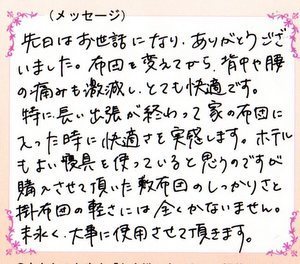 （メッセージ）
先日はお世話になり、ありがとうござ
いました。布団を変えてから、背中や腰
の痛みも激減し、とても快適です。
特に、長い出張が終わって家の布団に
入った時に快適さを実感します。ホテル
もよい寝具を使っていると思うのですが
購入させて頂いた敷布団のしっかりさと
掛布団の軽さには全くかないません。
末永く、大事に使用させて頂きます。